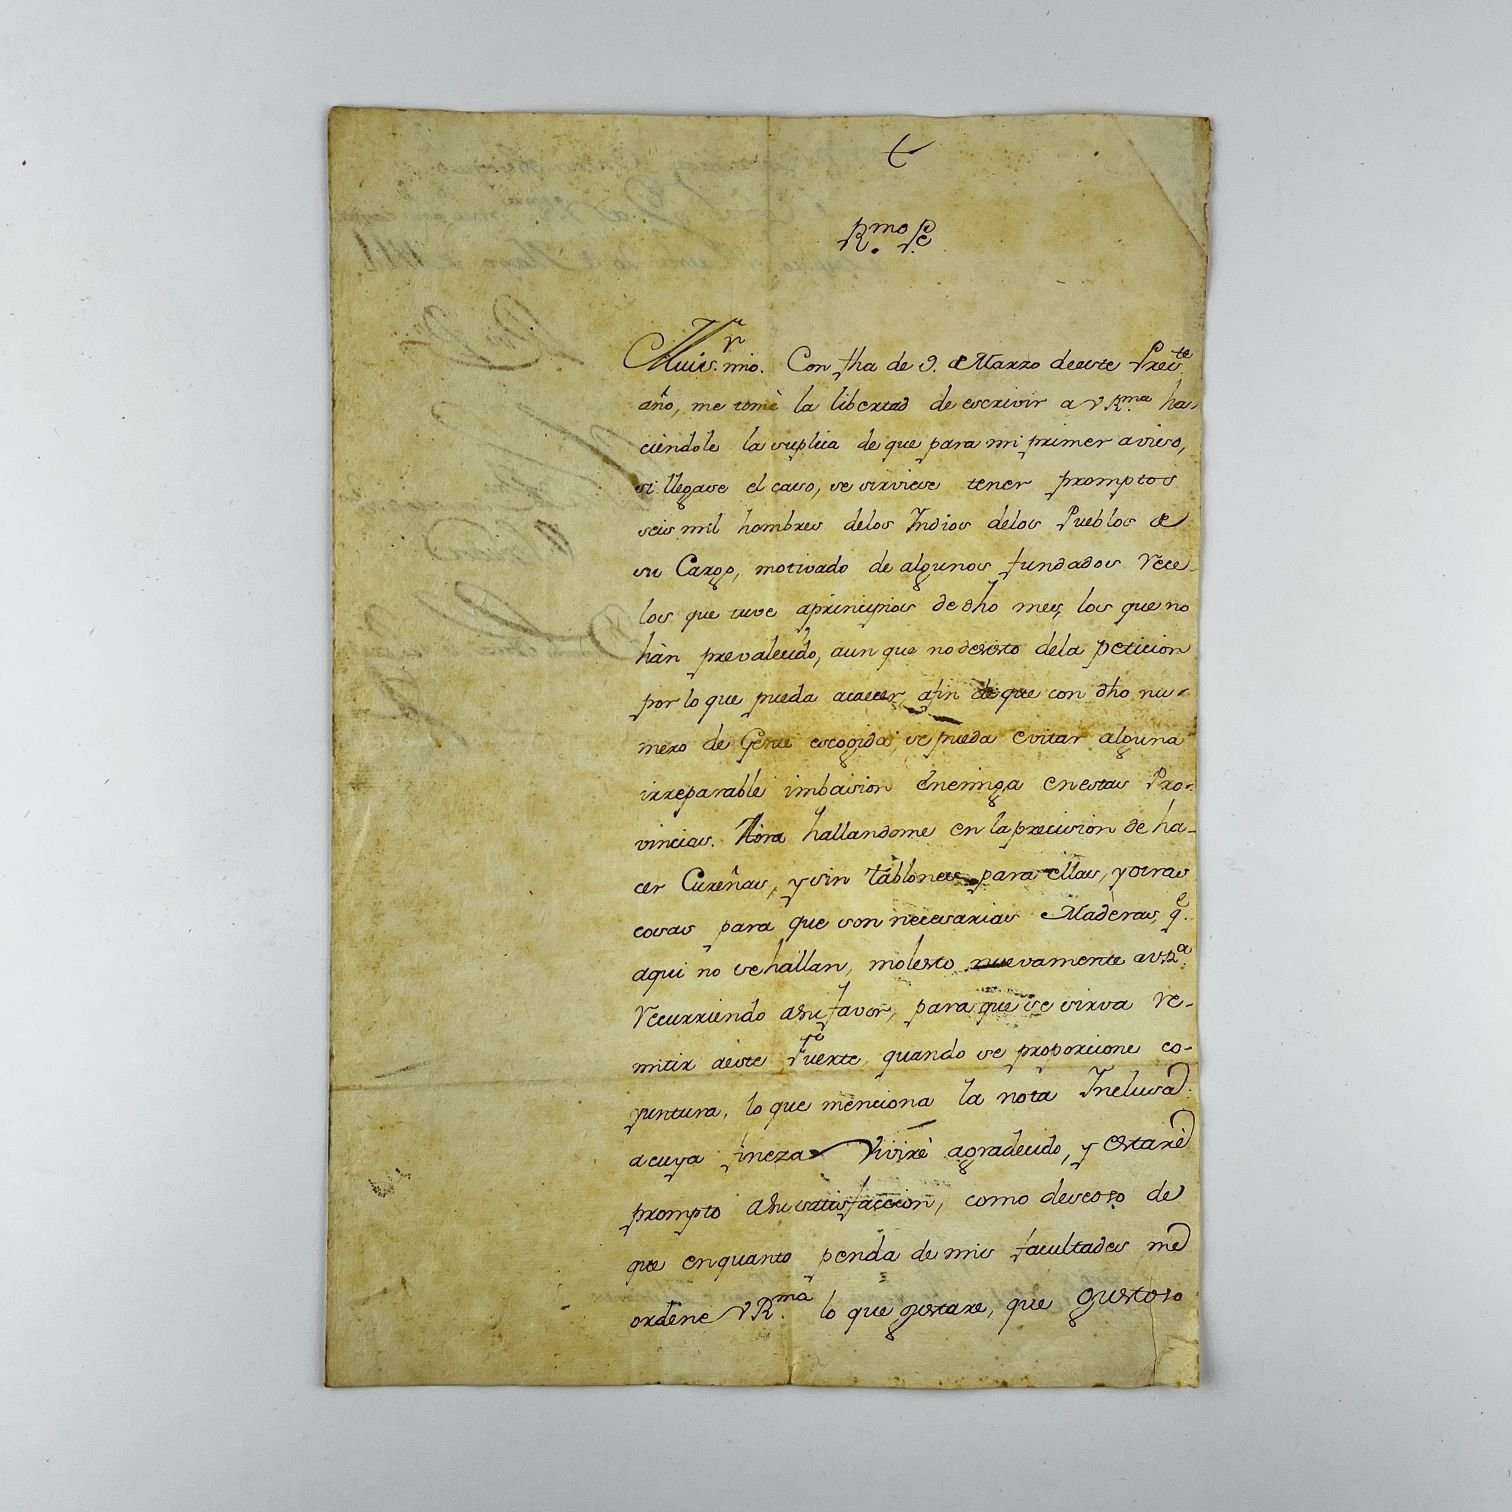 Rmo. Pe.
Mui Sr. mio. Con fha de 9. de Marzo de este Preste.
año, me tomè la libertad de escrivir a V Rma. ha-
ciendole la suplica de que para mi primer aviso,
si llegase el caso, se sirviese tener promptos
seis mil hombres delos Indios delos Pueblos de
su Cargo, motivado de algunos fundados rece-
los que tuve aprincipios de dho mes, los que no
hàn prevalecido, aun que no desisto dela peticion
por lo que pueda acaecer, afin de que con dho nu-
mero de Gente escogida, se pueda evitar alguna
irreparable imbasion Enemiga en estas Pro-
vincias. Aora hallandome en la precision de ha-
cer Cureñas, y sin tablones para ellas, y otras
cosas para que son necesarias Maderas, qe.
aqui no se hallan, molesto nuevamente a V Ra.
recurriendo a su favor, para que se sirva re-
mitir a este Fuerte, quando se proporcione co-
yuntura, lo que menciona la nota Inclusa
a cuya fineza vivirè agradecido, y estarè
prompto a su satisfaccion, como deseoso de
que en quanto penda de mis facultades me
ordene V Rma. lo que gustare, que gustoso